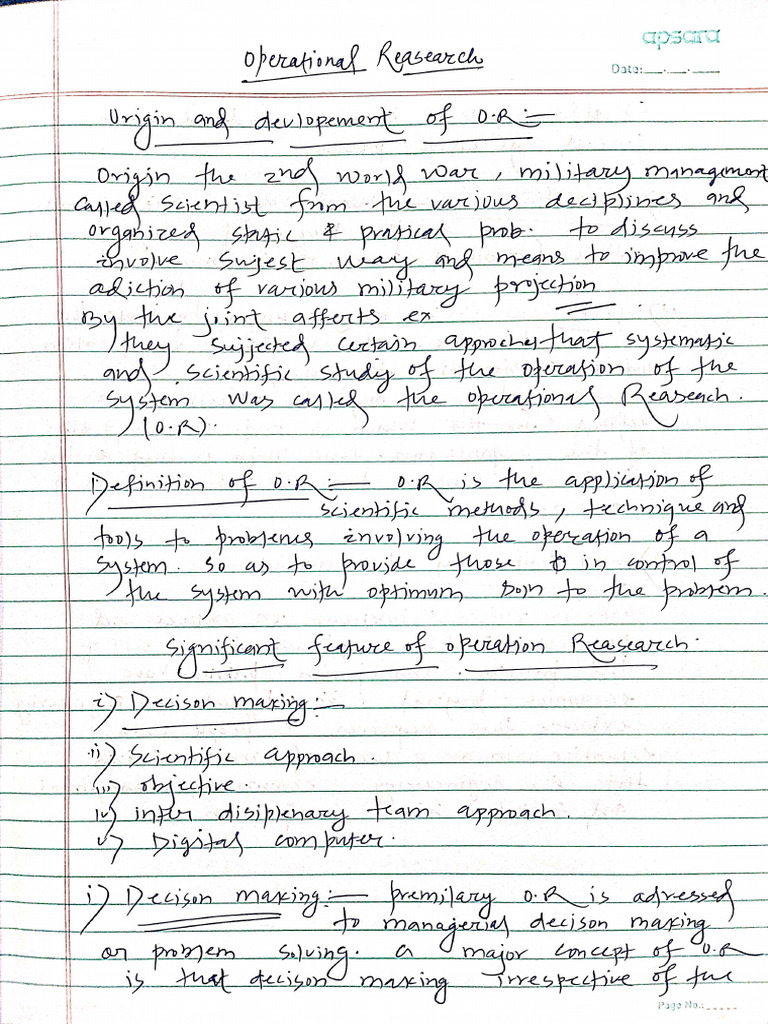 apsara
Operational Reasearch
Date:__.__.__
Origin and devlopement of O.R:—
Origin the 2nd world war, military management
called scientist from the various deciplines and
organized static & pratical prob. to discuss
involve sujest way and means to improve the
adiction of various military projection
By the joint afferts ex
they sujjected certain approches that systematic
and scientific study of the operation of the
system was called the operational Reaseach.
(O.R).
Definition of O.R:— O.R is the application of
scientific methods, technique and
tools to problems involving the operation of a
system. so as to provide those in control of
the system with optimum soln to the problem.
Significant feature of operation Reasearch.
i) Decison making:—
ii) Scientific approach.
iii) objective.
iv) inter disiplenary team approach.
v) Digital computer.
i) Decison making:— premilary O.R is adressed
to managerial decison making
or problem solving. a major concept of O.R
is that decison making irrespective of the
Page No.: